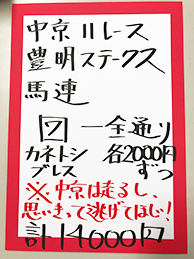 中京11レース
豊明ステークス
馬連
図 一全通り
カネトシ 各2000円
ブレス ずつ
※中京は走るし、
思いきって逃げてほし!
計14000円